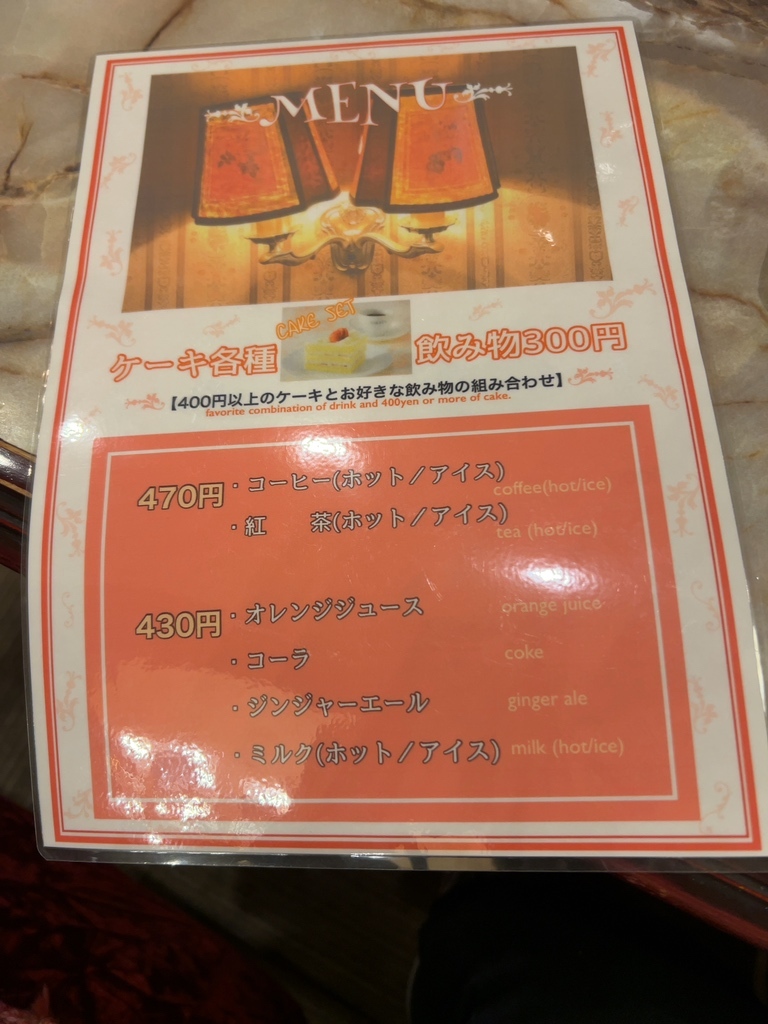 MENU
CAKE SET
ケーキ各種 飲み物300円
【400円以上のケーキとお好きな飲み物の組み合わせ】
favorite combination of drink and 400yen or more of cake.
470円 ・コーヒー(ホット／アイス) coffee(hot/ice)
・紅　茶(ホット／アイス) tea (hot/ice)
430円 ・オレンジジュース orange juice
・コーラ coke
・ジンジャーエール ginger ale
・ミルク(ホット／アイス) milk (hot/ice)